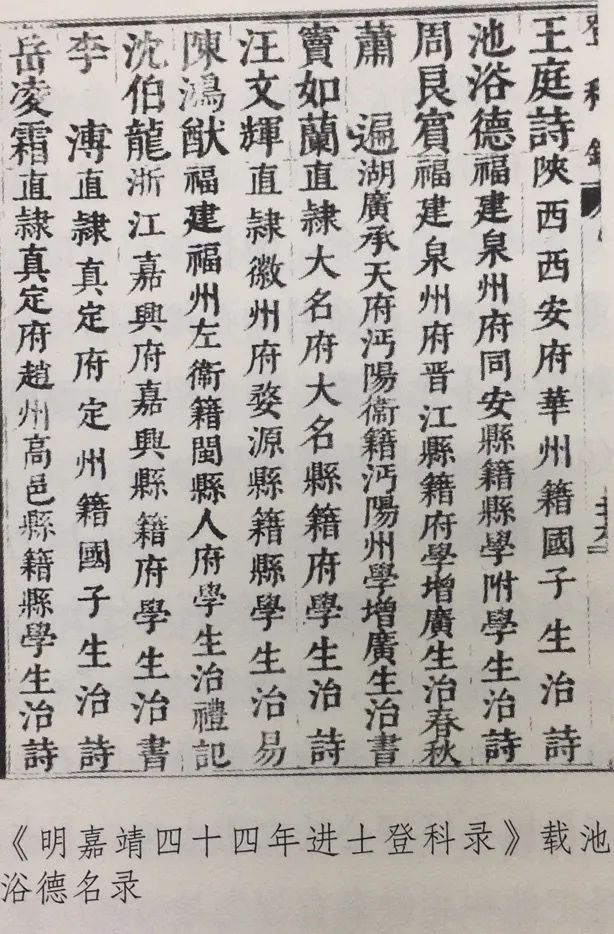 登科錄
王庭詩陝西西安府華州籍國子生治詩
池浴德福建泉州府同安縣籍縣學附學生治詩
周良賓福建泉州府晋江縣籍府學增廣生治春秋
蕭遍湖廣承天府沔陽衞籍沔陽州學增廣生治書
竇如蘭直隸大名府大名縣籍府學生治詩
汪文輝直隸徽州府婺源縣籍縣學生治易
陳鴻猷福建福州左衞籍閩縣人府學生治禮記
沈伯龍浙江嘉興府嘉興縣籍府學生治書
李溥直隸真定府定州籍國子生治詩
岳凌霜直隸真定府趙州高邑縣籍縣學生治詩
《明嘉靖四十四年进士登科录》载池
浴德名录